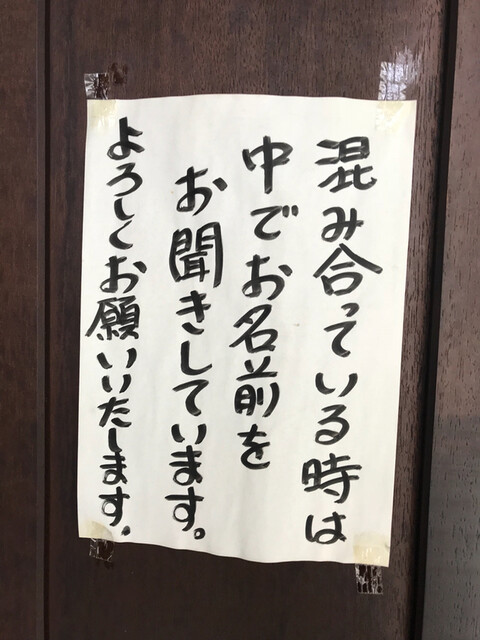 混み合っている時は
中でお名前を
お聞きしています。
よろしくお願いいたします.